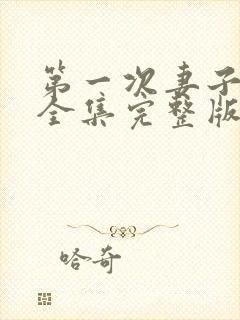 第一次妻子
全集完整版
哈奇